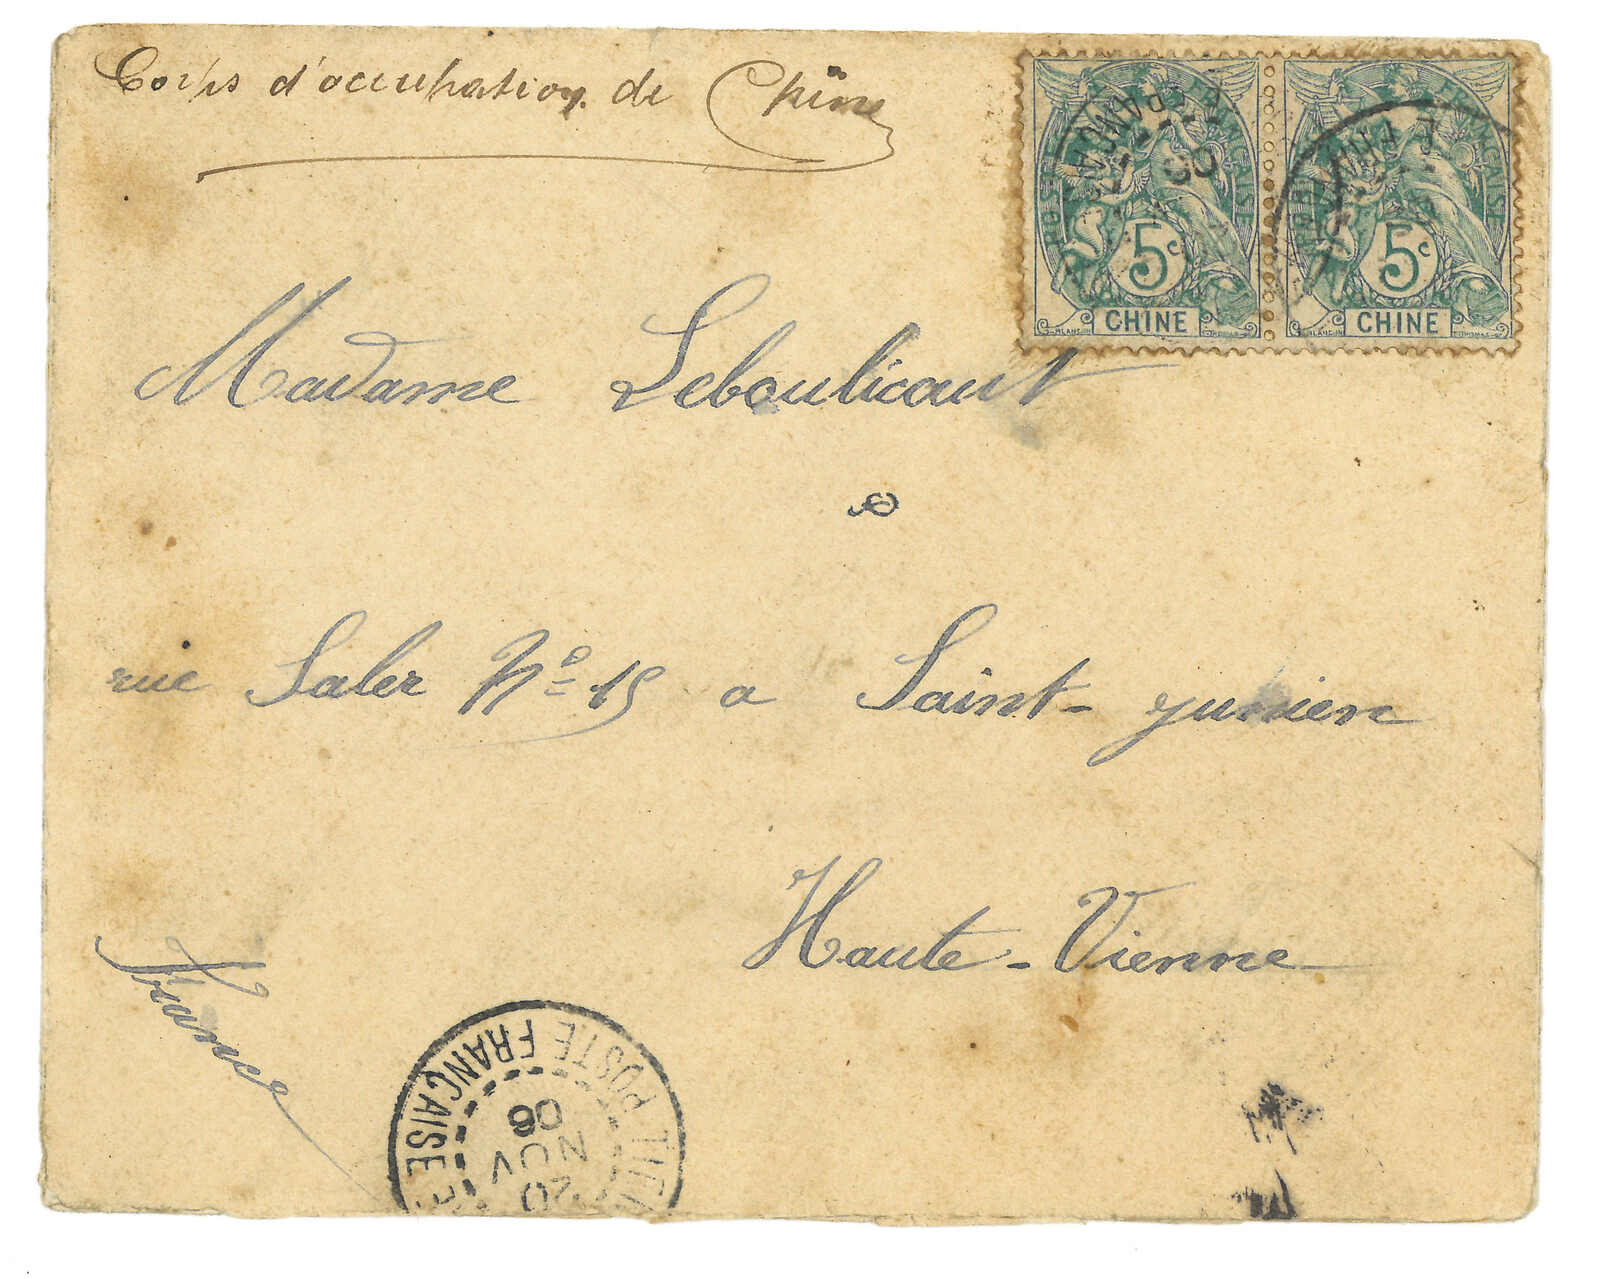 Corps d'occupation de Chine
FRANÇAISE
FRANÇAISE
5c
5c
CHINE
CHINE
Madame Leboulicaut
rue Saler No 15 a Saint-yunien
Haute-Vienne
France
POSTE FRANÇAISE
20
NOV
06